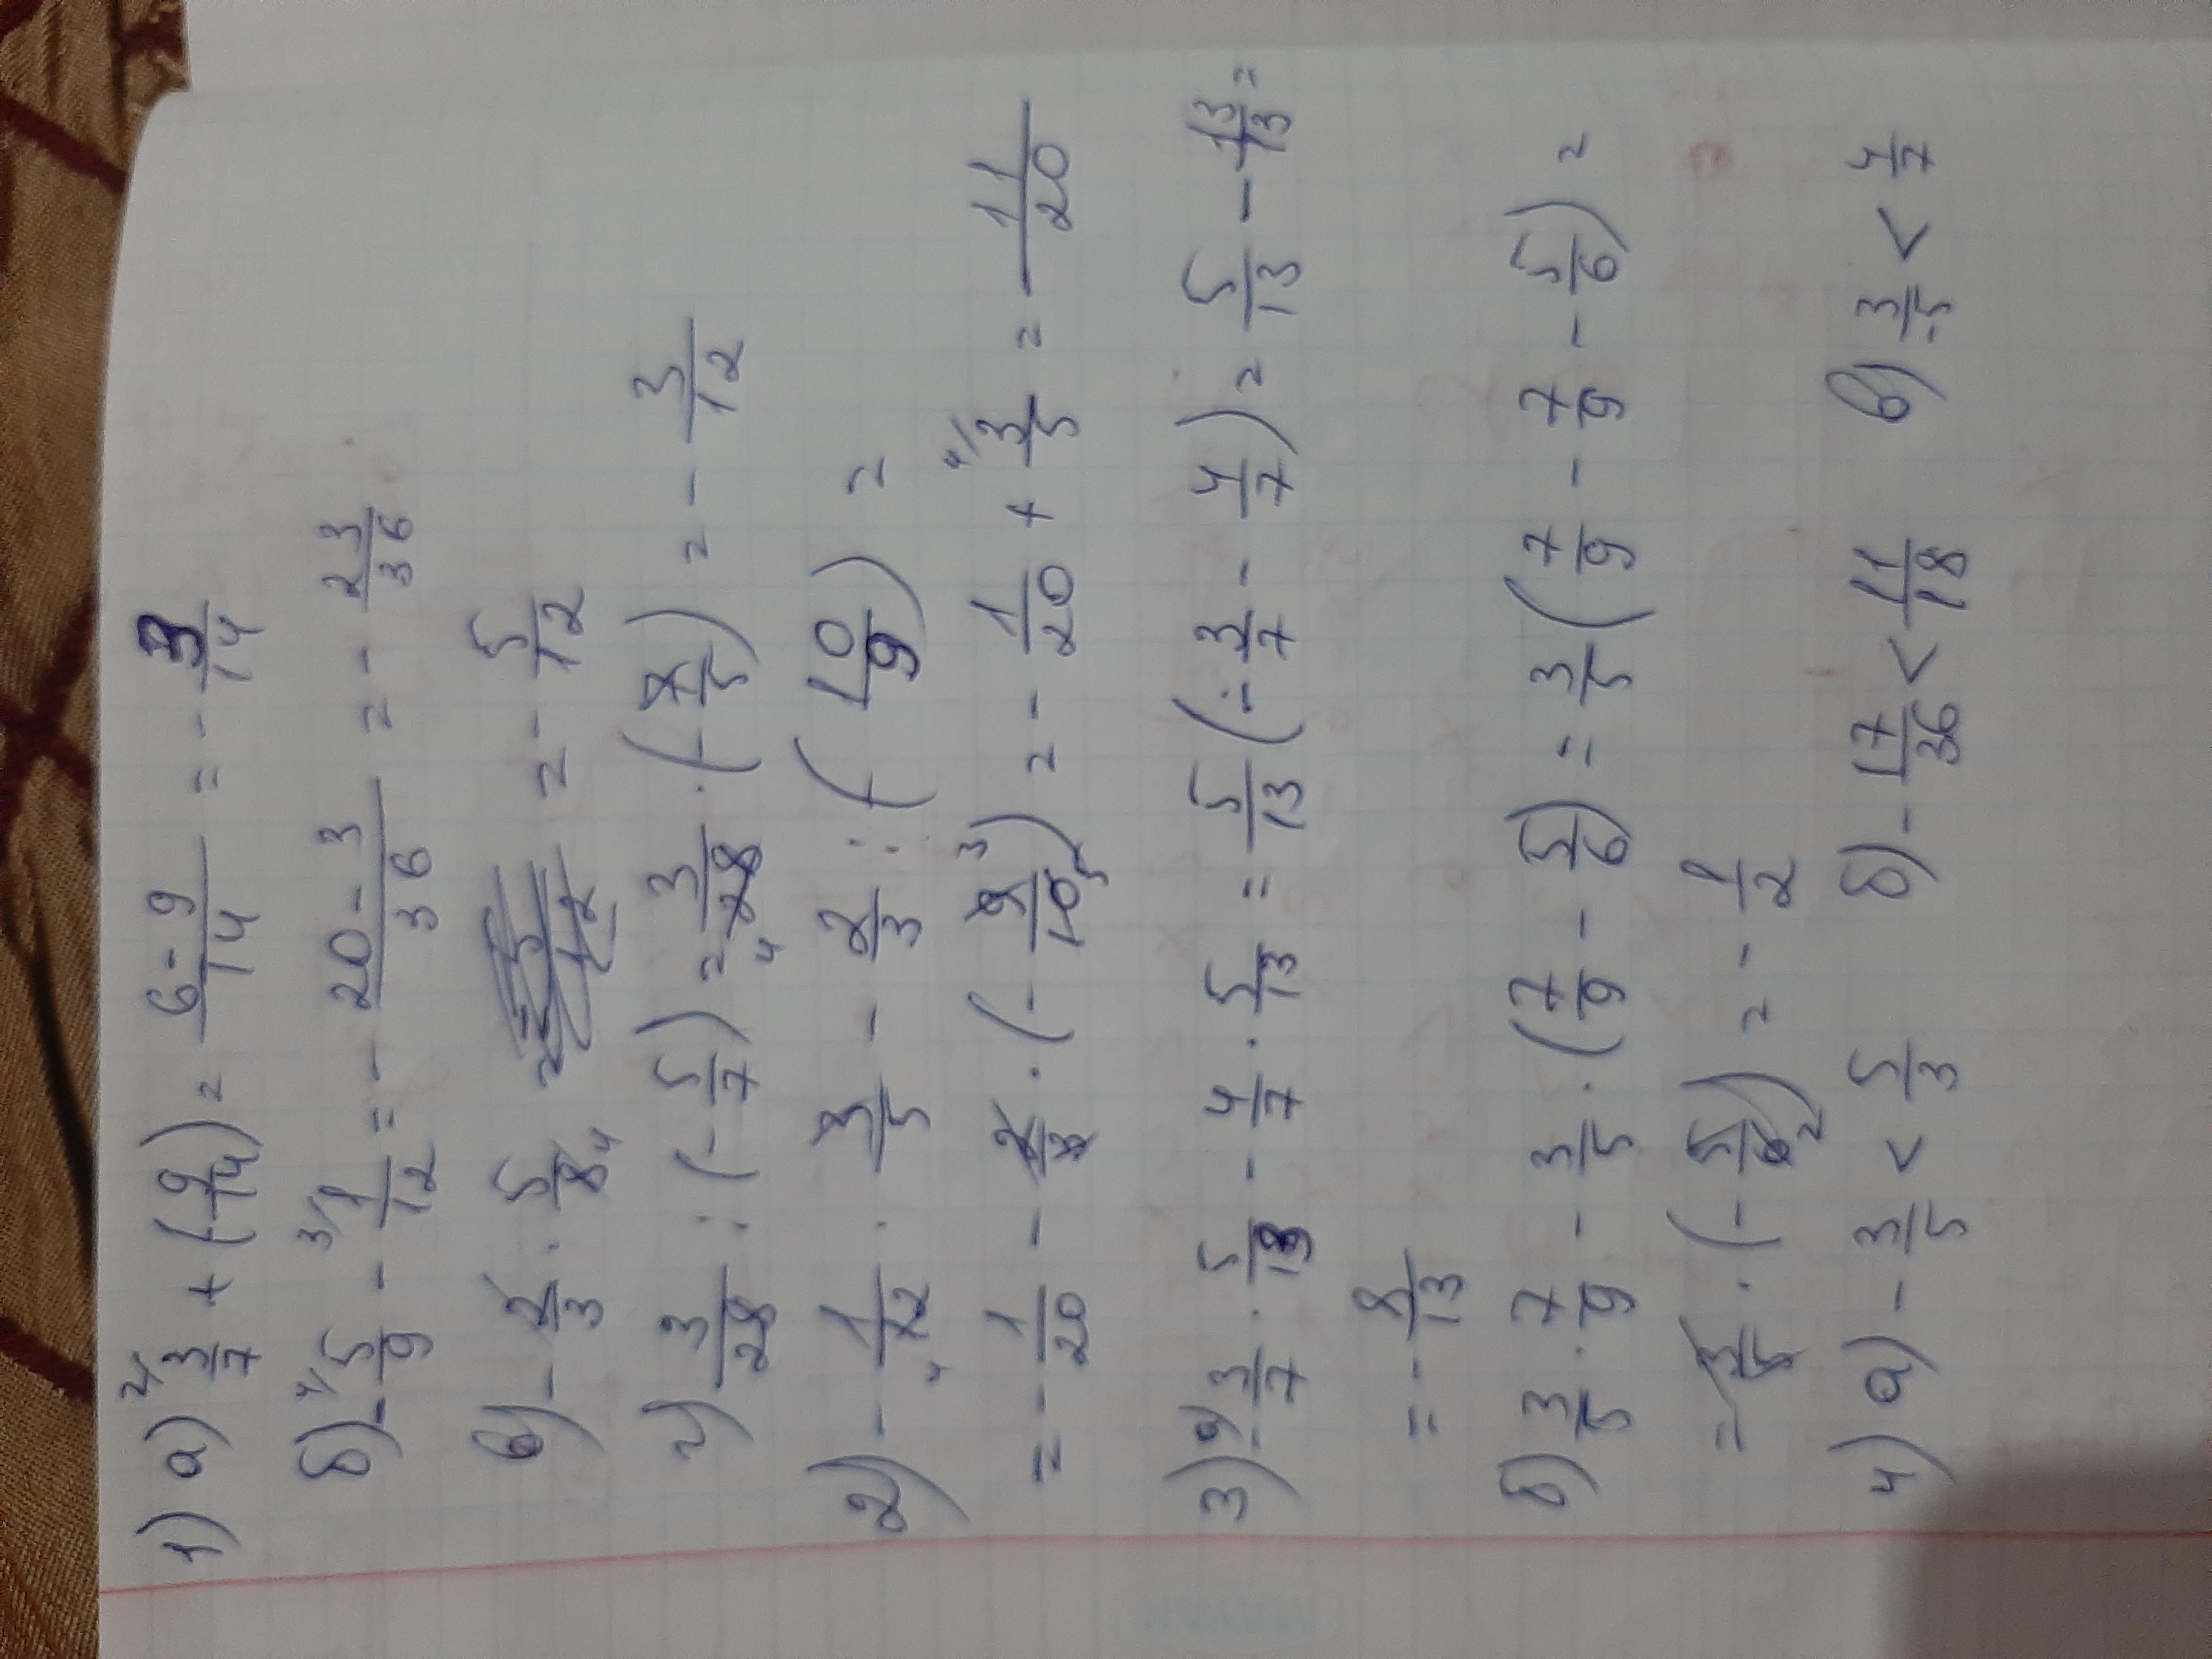 1) а) 2/ 3/7 + (-9/14) = 6-9/14 = -3/14
б) - 4/ 5/9 - 3/ 1/12 = - 20-3/36 = - 23/36
в) - 2/3 · 5/8 4 = - 5/12
г) 3/28 : (-5/7) = 3/28 4 · (-7/5) = - 3/12
2) - 1/12 4 · 3/5 - 2/3 : (-10/9) =
= - 1/20 - 2/3 · (- 9/10 3 5) = - 1/20 + 4/ 3/5 = 11/20
3) а) - 3/7 · 5/13 - 4/7 · 5/13 = 5/13 (- 3/7 - 4/7) = 5/13 - 13/13 =
= - 8/13
б) 3/5 · 7/9 - 3/5 · (7/9 - 5/6) = 3/5 (7/9 - 7/9 - 5/6) =
= 3/5 · (- 5/6 2) = - 1/2
4) а) - 3/5 < 5/3 б) - 17/36 < 11/18 в) 3/-5 < 4/7